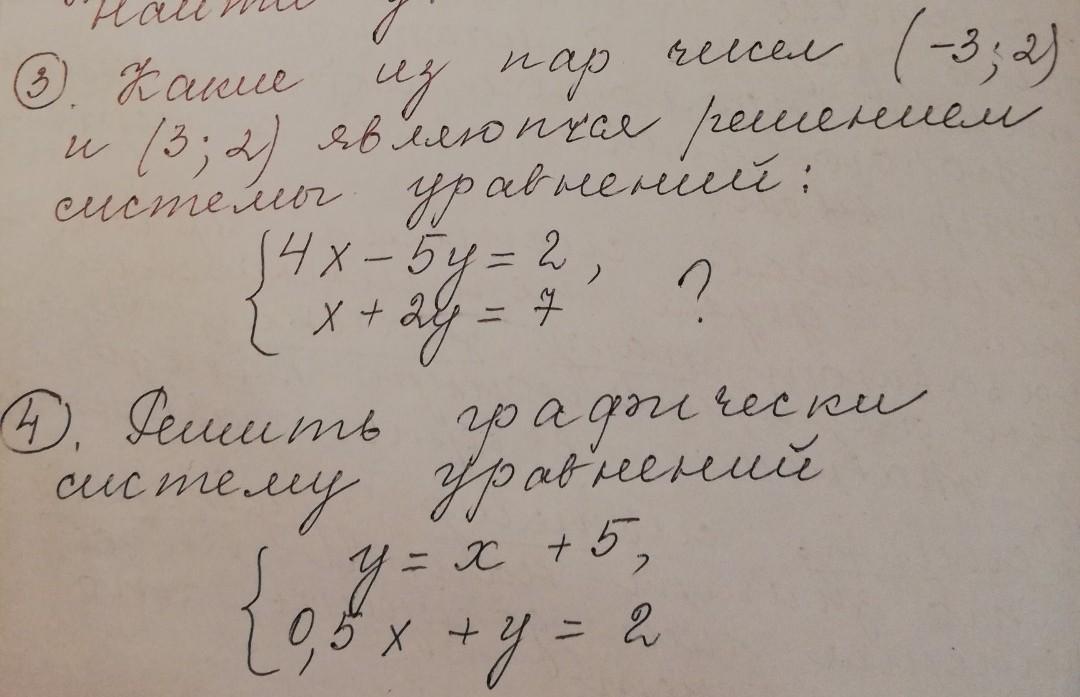 Найти у
③. Какие из пар чисел (-3; 2)
и (3; 2) являются решением
системы уравнений:
{4x - 5y = 2,
x + 2y = 7 ?
④. Решить графически
систему уравнений
{y = x + 5,
0,5x + y = 2